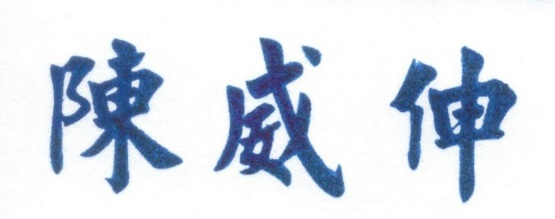 陳威伸